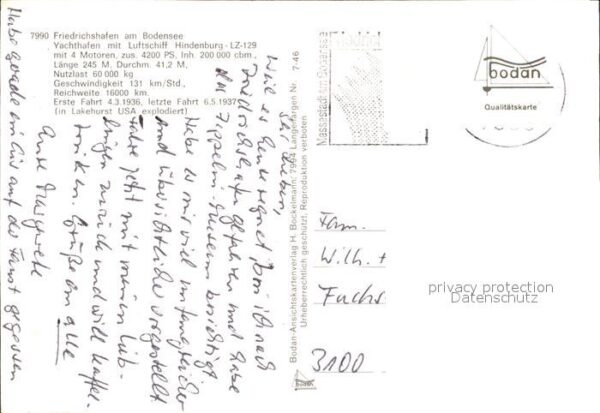 7990 Friedrichshafen am Bodensee
Yachthafen mit Luftschiff Hindenburg - LZ-129
mit 4 Motoren, zus. 4200 PS, Inh. 200 000 cbm.
Länge 245 M. Durchm. 41,2 M,
Nutzlast 60 000 kg
Geschwindigkeit 131 km/Std.,
Reichweite 16000 km.
Erste Fahrt 4.3.1936, letzte Fahrt 6.5.1937
(in Lakehurst USA explodiert)
Ihr Lieben,
Weil es heute regnet bin ich nach
Friedrichshafen gefahren und habe
das Zeppelin-Museum besichtigt.
Habe es mir viel umfangreicher
und übersichtlicher vorgestellt.
Fahre jetzt mit meinen
zurück und will Kaffee
trinken. Grüße an alle
Eure
Habe gerade ein Eis auf der Faust gegessen
Bodan-Ansichtskartenverlag H. Bockelmann, 7994 Langenargen Nr. 7-46
Urheberrechtlich geschützt, Reproduktion verboten
Messestadt am Bodensee
bodan
Qualitätskarte
Fam.
Wilh. +
Fuchs
3100
privacy protection
Datenschutz